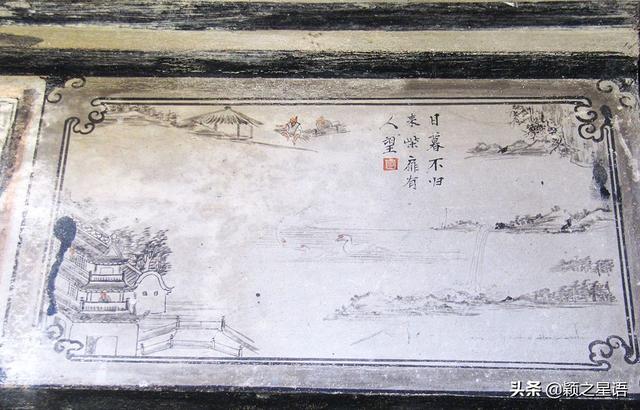 日暮不归
来柴扉有
人望
头条 @颖之星语